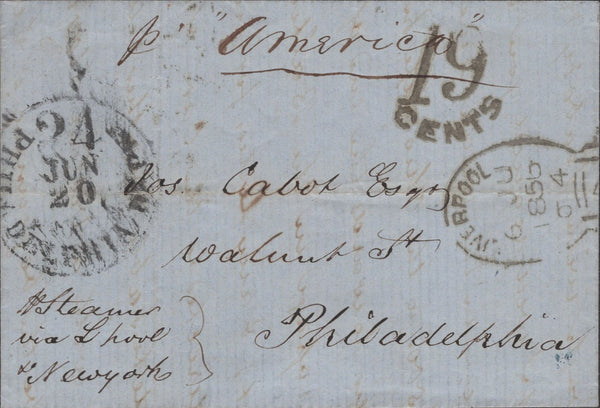 pr "America"
19
CENTS
24
JUN
20
PHILA
LIVERPOOL
JU
Jos Cabot Esqr
Walnut St
Philadelphia
pr Steamer
via L'pool
& Newyork